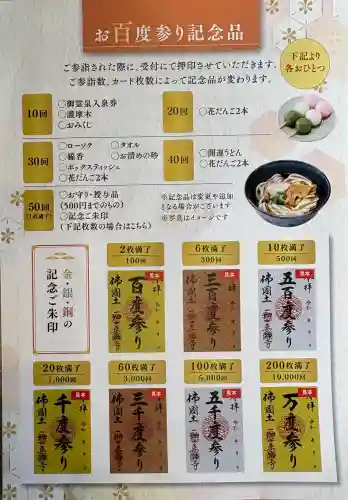 お百度参り記念品
ご参詣された際に、受付にて押印させていただきます。
ご参詣数、カード枚数によって記念品が変わります。
下記より
各おひとつ
10回
〇御霊泉入泉券
〇護摩木
〇おみくじ
20回
〇花だんご2本
30回
〇ローソク
〇タオル
〇線香
〇お清めの砂
〇ボックスティッシュ
〇花だんご2本
40回
〇開運うどん
〇花だんご2本
50回
(1枚満了)
〇お守り・授与品
(500円までのもの)
〇記念ご朱印
(下記枚数の場合はこちら)
※記念品は変更や追加
となる場合がございます
※写真はイメージです
金・銀・銅の
記念ご朱印
2枚満了
100回
見本
百度参り
佛国土
6枚満了
300回
見本
三百度参り
佛国土
10枚満了
500回
見本
五百度参り
佛国土
20枚満了
1,000回
見本
千度参り
佛国土
60枚満了
3,000回
見本
三千度参り
佛国土
100枚満了
5,000回
見本
五千度参り
佛国土
200枚満了
10,000回
見本
万度参り
佛国土